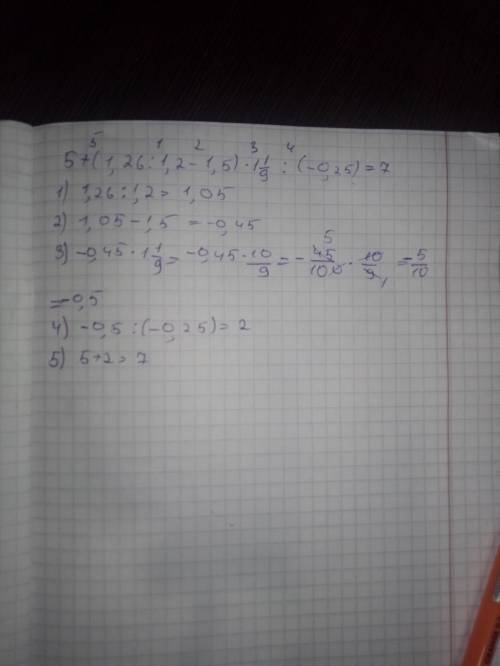 5 1 2 3 4
5+(1,26:1,2-1,5)·1 1/9 : (-0,25)=7
1) 1,26:1,2= 1,05
2) 1,05-1,5 =-0,45
3) -0,45·1 1/9=-0,45·10/9=- 45/100 · 10/9 =-5/10
5 1
=-0,5
4) -0,5:(-0,25)=2
5) 5+2=7